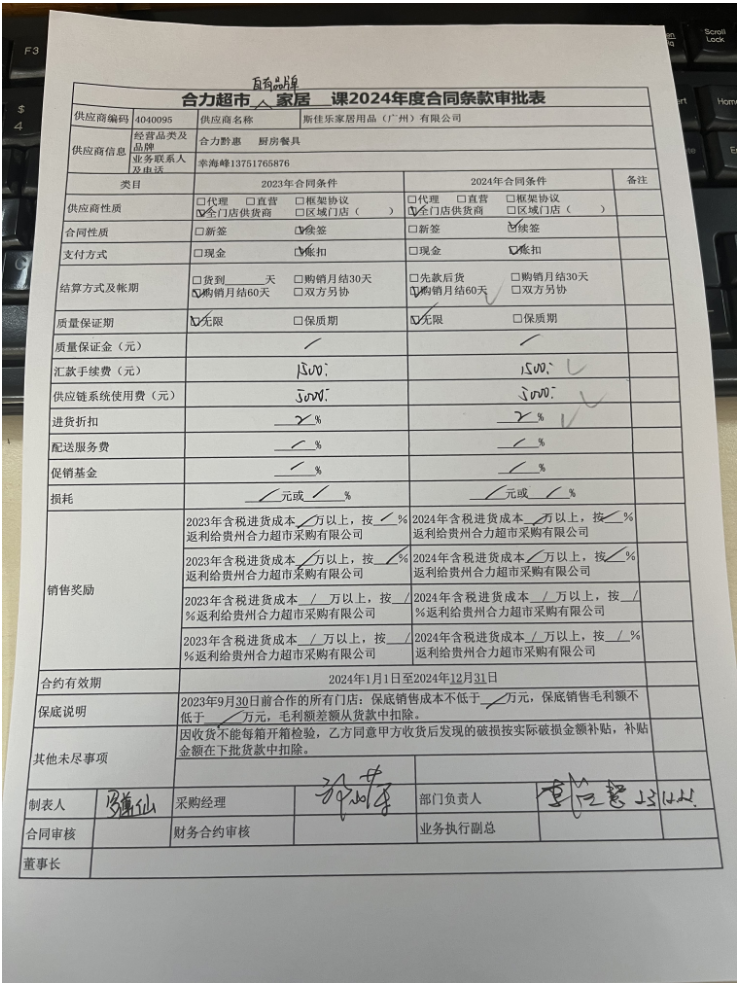 自有品牌
合力超市 家居 课2024年度合同条款审批表
供应商编码 4040095 供应商名称 斯佳乐家居用品（广州）有限公司
供应商信息 经营品类及品牌 合力黔惠 厨房餐具
业务联系人及电话 幸海峰13751765876
类目 2023年合同条件 2024年合同条件 备注
供应商性质 □代理 □直营 □框架协议 □代理 □直营 □框架协议
☑全门店供货商 □区域门店（ ） ☑全门店供货商 □区域门店（ ）
合同性质 □新签 ☑续签 □新签 ☑续签
支付方式 □现金 ☑账扣 □现金 ☑账扣
结算方式及帐期 □货到____天 □购销月结30天 □先款后货 □购销月结30天
☑购销月结60天 □双方另协 ☑购销月结60天 □双方另协
质量保证期 ☑无限 □保质期 ☑无限 □保质期
质量保证金（元） / /
汇款手续费（元） 1500: 1500:
供应链系统使用费（元） 5000: 5000:
进货折扣 2% 2%
配送服务费 /% /%
促销基金 /% /%
损耗 /元或/% /元或/%
销售奖励
2023年含税进货成本/万以上，按/% 2024年含税进货成本/万以上，按/%
返利给贵州合力超市采购有限公司 返利给贵州合力超市采购有限公司
2023年含税进货成本/万以上，按/% 2024年含税进货成本/万以上，按/%
返利给贵州合力超市采购有限公司 返利给贵州合力超市采购有限公司
2023年含税进货成本/万以上，按/ 2024年含税进货成本/万以上，按/
%返利给贵州合力超市采购有限公司 %返利给贵州合力超市采购有限公司
2023年含税进货成本/万以上，按/ 2024年含税进货成本/万以上，按/%
%返利给贵州合力超市采购有限公司 返利给贵州合力超市采购有限公司
合约有效期 2024年1月1日至2024年12月31日
保底说明 2023年9月30日前合作的所有门店：保底销售成本不低于/万元，保底销售毛利额不
低于/万元，毛利额差额从货款中扣除。
其他未尽事项 因收货不能每箱开箱检验，乙方同意甲方收货后发现的破损按实际破损金额补贴，补贴
金额在下批货款中扣除。
制表人 采购经理 部门负责人
合同审核 财务合约审核 业务执行副总
董事长
F3
$
4
Scroll
Lock
Home